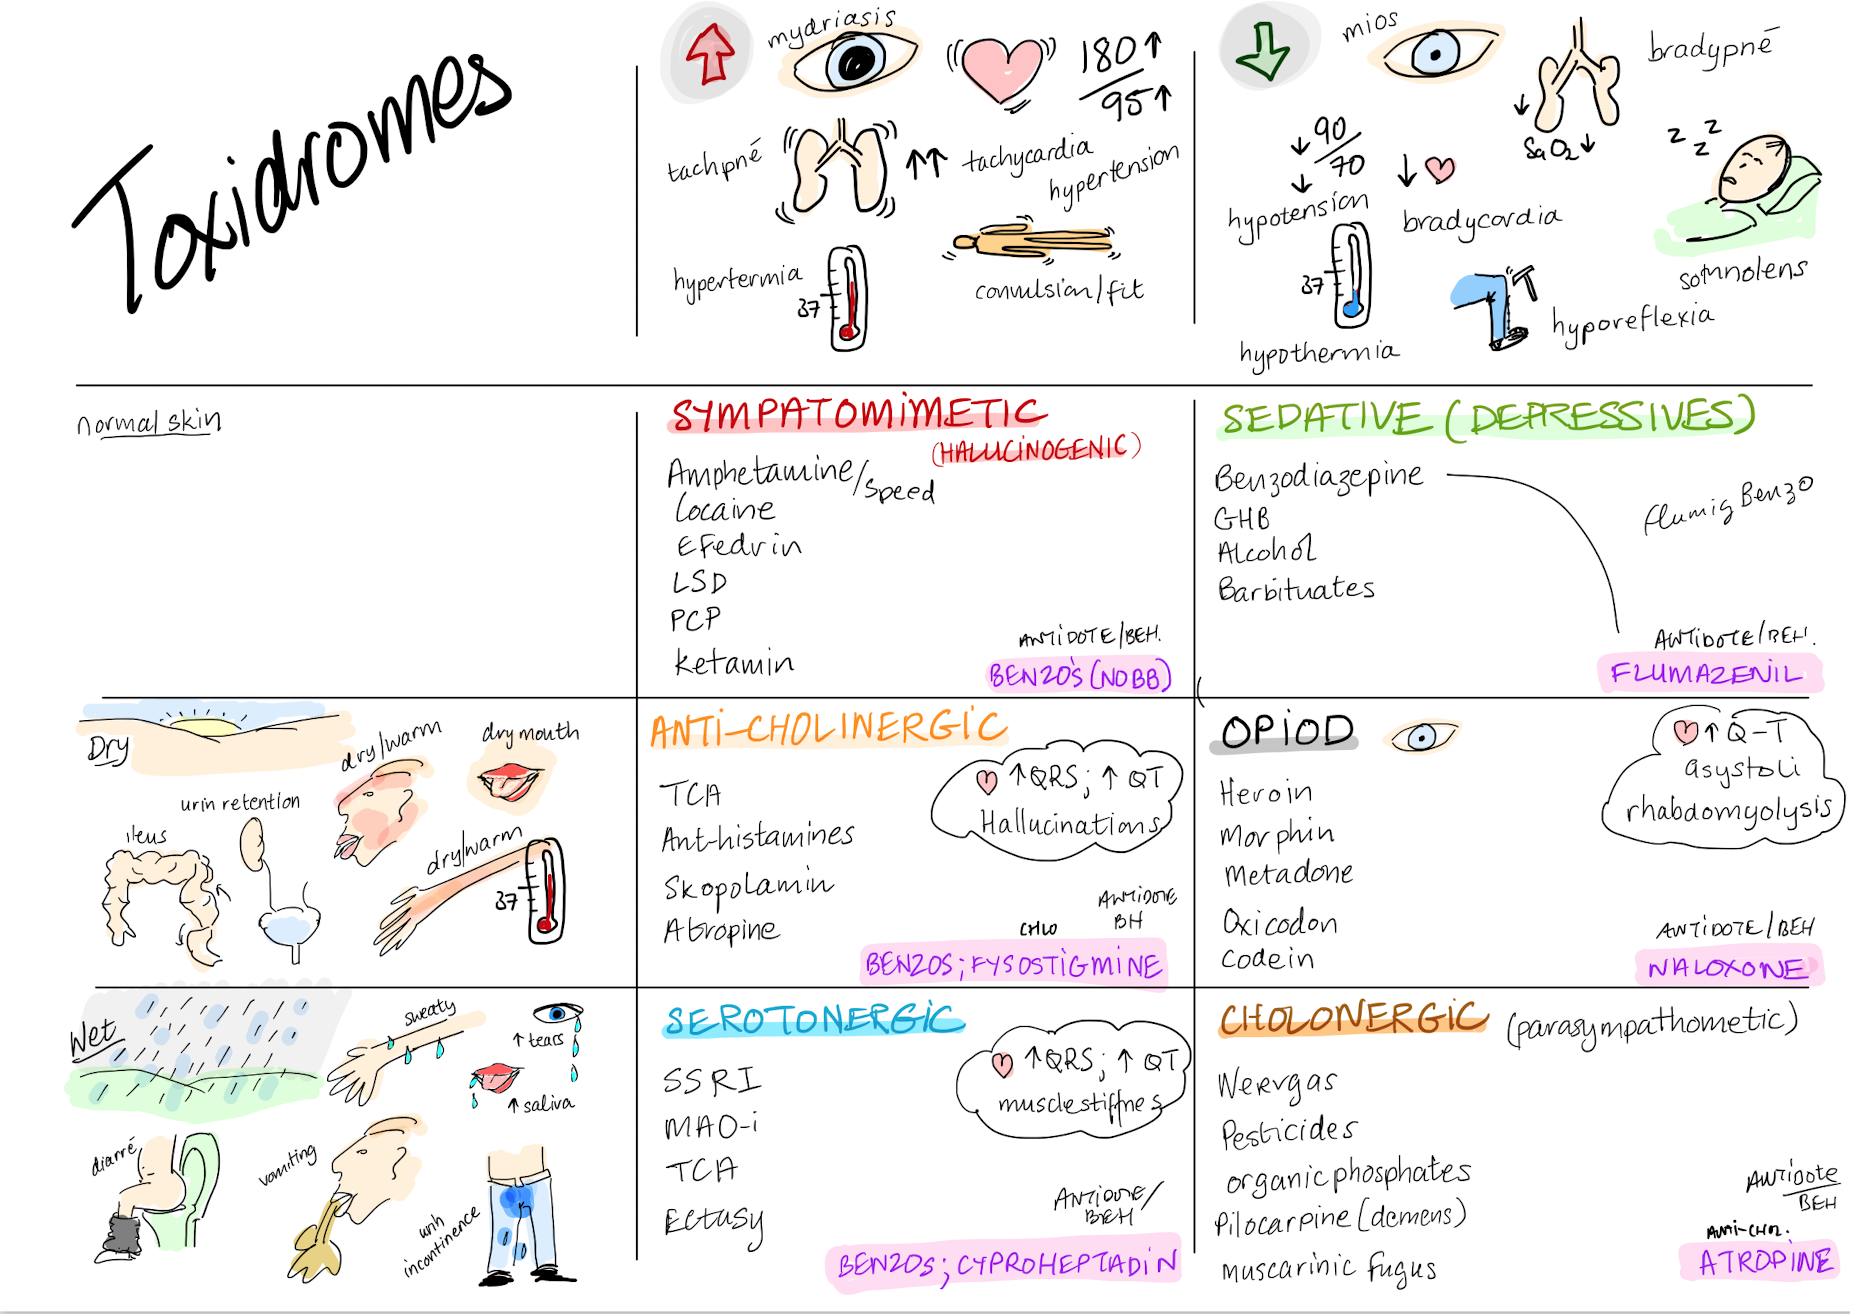 Toxidromes
mydriasis
180↑
95↑
tachpné
↑↑
tachycardia
hypertension
hypertermia
37
convulsion/fit
mios
bradypné
↓
SaO2↓
↓90
70
↓
hypotension
↓
bradycardia
z z
z
somnolens
37
hypothermia
hyporeflexia
normal skin
SYMPATOMIMETIC
(HALLUCINOGENIC)
Amphetamine/speed
Cocaine
Efedrin
LSD
PCP
Ketamin
ANTIDOTE/BEH.
BENZO'S (NOBB)
SEDATIVE (DEPRESSIVES)
Benzodiazepine
GHB
Alcohol
Barbituates
flumig Benzo
ANTIDOTE/BEH.
FLUMAZENIL
Dry
dry/warm
dry mouth
urin retention
ileus
dry/warm
37
ANTI-CHOLINERGIC
TCA
Ant-histamines
Skopolamin
Atropine
↑QRS; ↑QT
Hallucinations
ANTIDOTE
BH
CHLO
BENZOS; FYSOSTIGMINE
OPIOD
Heroin
Morphin
Metadone
Oxicodon
Codein
↑Q-T
asystoli
rhabdomyolysis
ANTIDOTE/BEH
NALOXONE
Wet
sweaty
↑tears
↑saliva
diarré
vomiting
incontinence
SEROTONERGIC
SSRI
MAO-i
TCA
Ectasy
↑QRS; ↑QT
musclestiffnes
ANTIDOTE/
BEH
BENZOS; CYPROHEPTADIN
CHOLONERGIC (parasympathometic)
Pesticides
organic phosphates
Pilocarpine (demens)
muscarinic fugus
ANTIDOTE
BEH
ANTI-CHOL.
ATROPINE